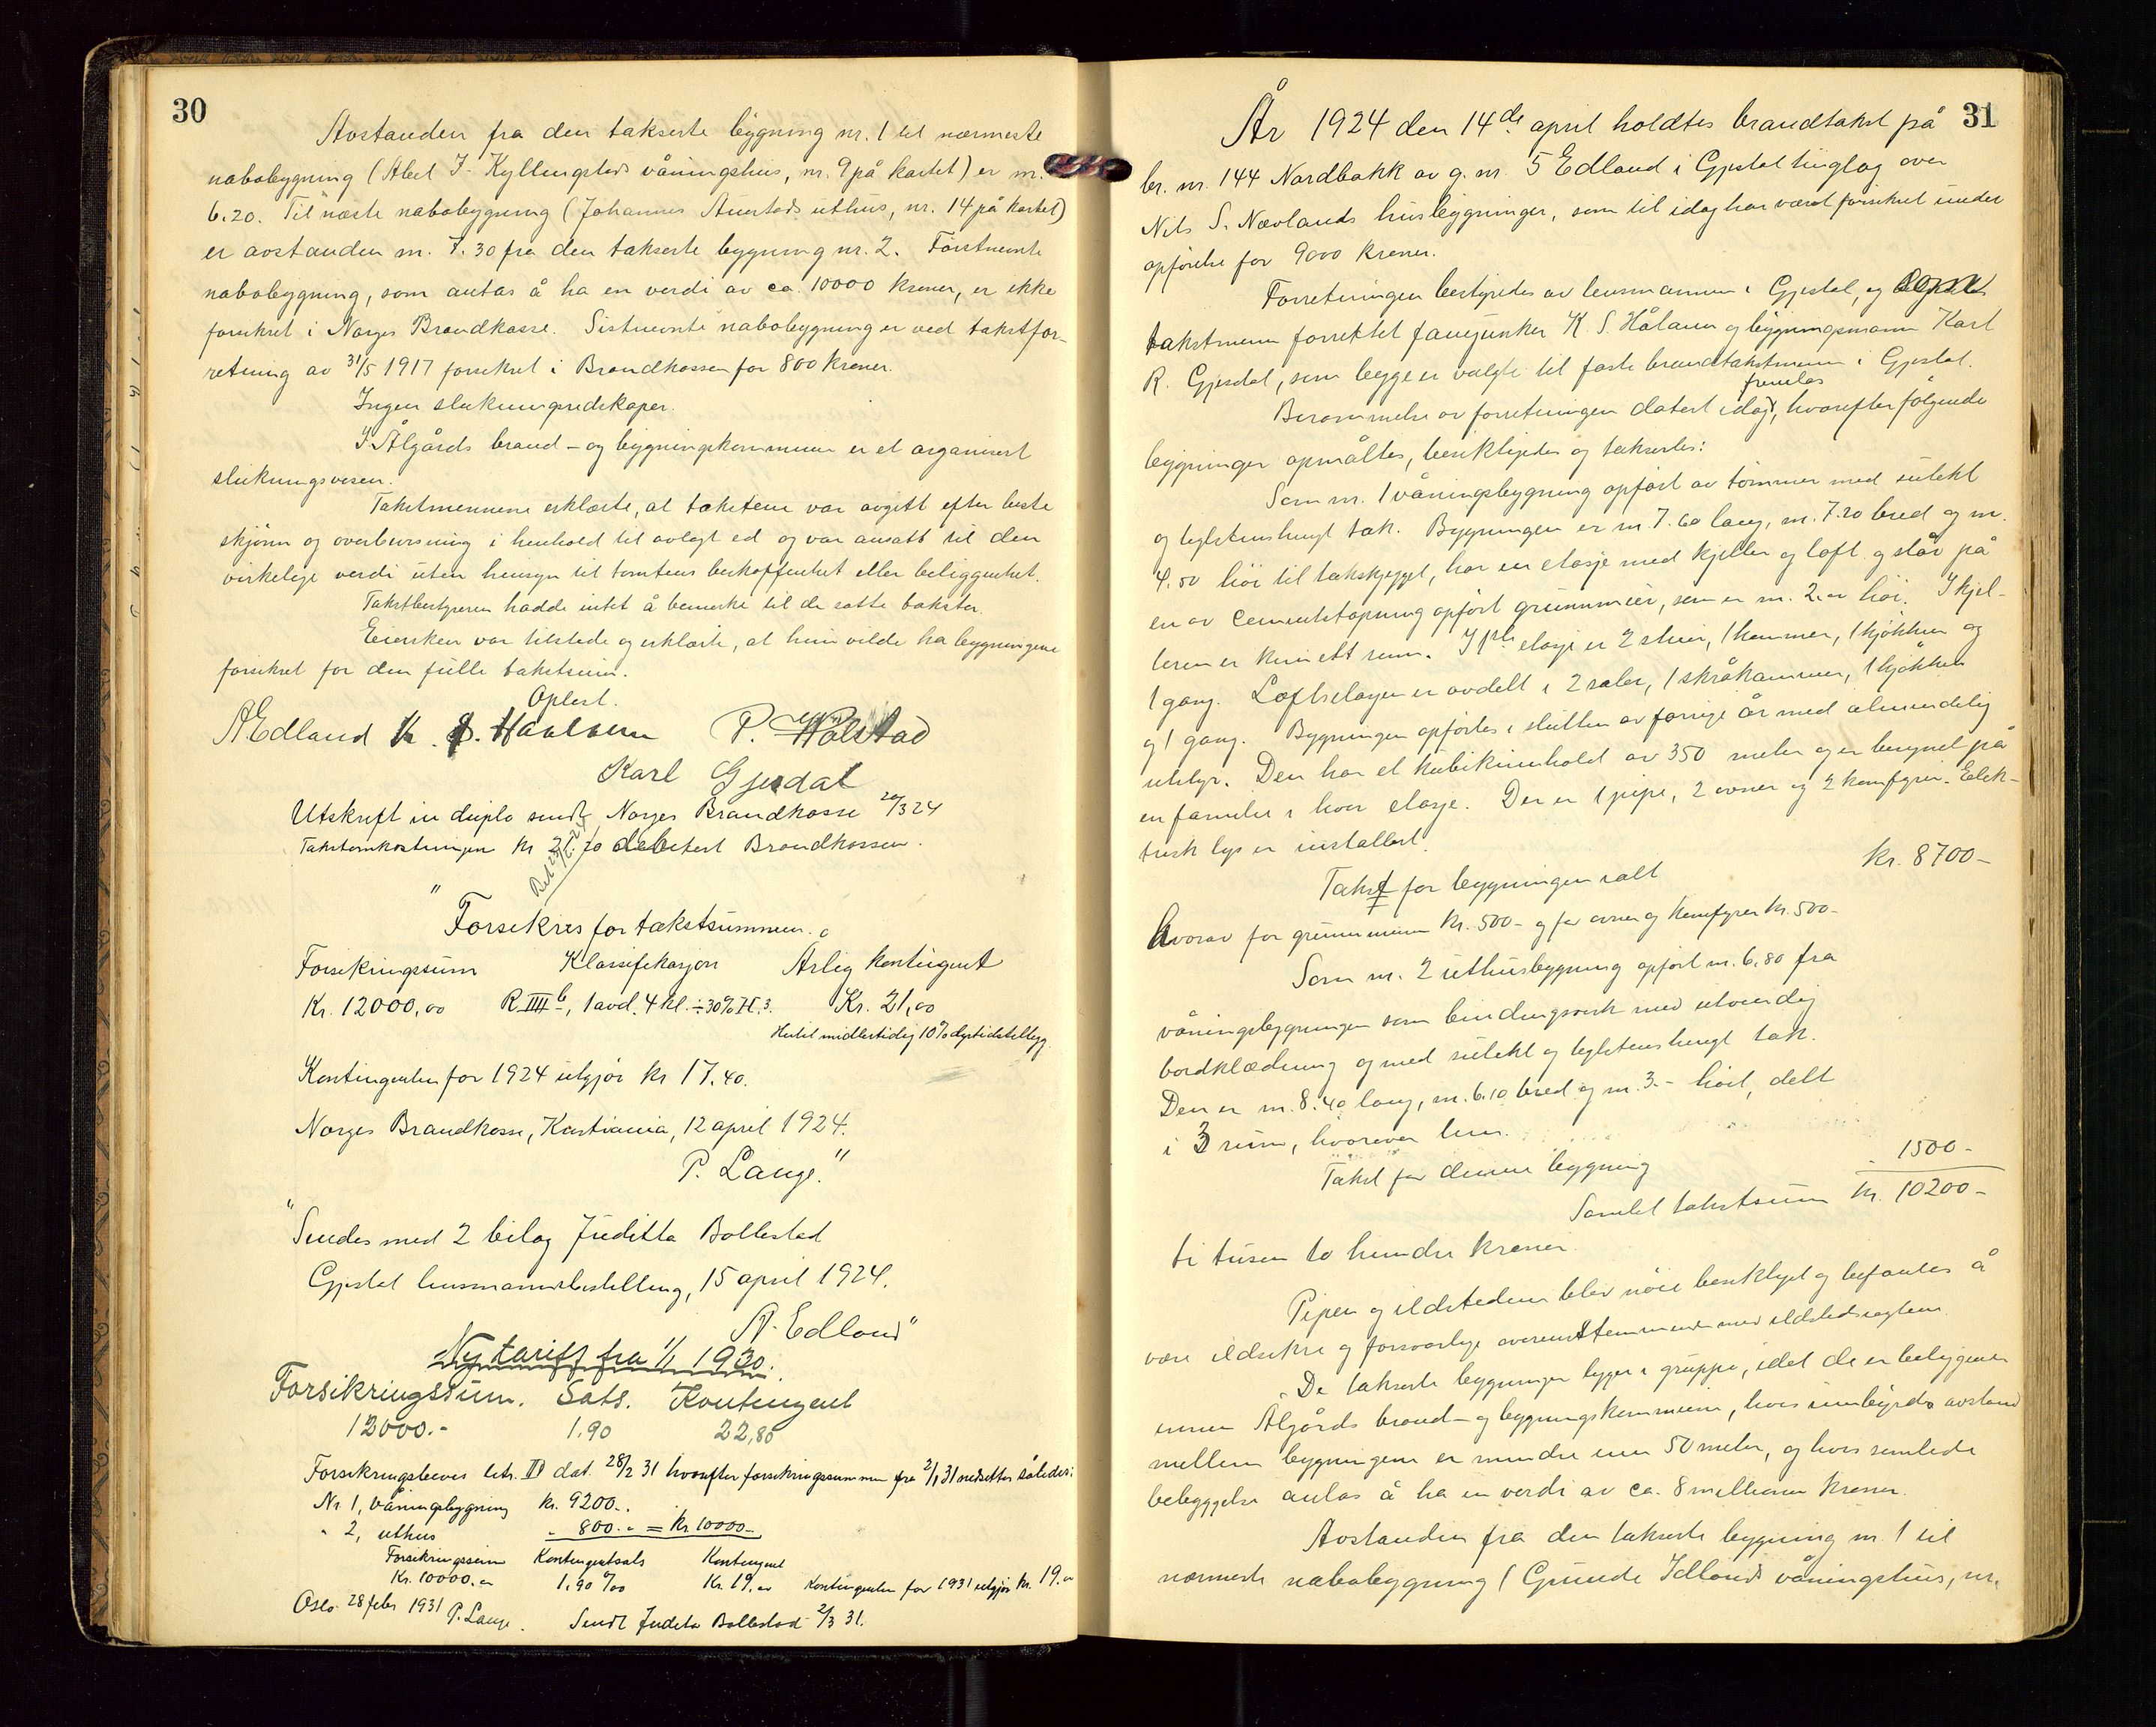 30
Avstanden fra den takserte bygning nr. 1 til nærmeste
nabobygning (Abel J. Kyllingstads våningshus, nr. 9 på kartet) er m.
6.20. Til næste nabobygning (Johannes Auestads uthus, nr. 14 på kartet)
er avstanden m. 7.30 fra den takserte bygning nr. 2. Førstnevnte
nabobygning, som antas å ha en verdi av ca. 10000 kroner, er ikke
forsikret i Norges Brandkasse. Sistnevnte nabobygning er ved takstfor-
retning av 31/5 1917 forsikret i Brandkassen for 800 kroner.
Ingen slukningsredskaper.
I Ålgårds brand- og bygningskommune er et organisert
slukningsvesen.
Takstmennene erklærte, at takstene var avgitt efter beste
skjønn og overbevisning i henhold til avlagt ed og var ansatt til den
virkelige verdi uten hensyn til tomtens beskaffenhet eller beliggenhet.
Takstbestyreren hadde intet å bemerke til de satte takster.
Eiersken var tilstede og erklærte, at hun vilde ha bygningene
forsikret for den fulle takstsum.
Oplest.
A Edland K. S. Haaland P. Hølstad
Karl Gjesdal
Utskrift in duplo sendt Norges Brandkasse 20/3 24
Takstomkostningen kr 21.20 debitert Brandkassen.
"Forsikres for takstsummen.
Forsikringssum Klassifikasjon Årlig kontingent
Kr. 12000,00 R IIII b, 1 avd. 4 kl. ÷ 30% H. 3. Kr. 21,00
Hertil midlertidig 10% dyrtidstillegg
Kontingenten for 1924 utgjør kr 17.40.
Norges Brandkasse, Kristiania, 12 april 1924.
P. Lange."
"Sendes med 2 bilag Juditta Bollestad
Gjestal lensmannsbestilling, 15 april 1924.
A. Edland"
Ny tariff fra 1/1 1930.
Forsikringssum. Sats. Kontingent
12000.- 1.90 22,80
Forsikringsbevis litr. D dat. 28/2 31 hvorefter forsikringssummen fra 2/1 31 nedsettes således:
Nr 1, våningsbygning kr. 9200.-
" 2, uthus " 800.- = kr 10000.-
Forsikringssum Kontingentsats Kontingent
Kr. 10000.00 1.90 ‰ Kr. 19.00 Kontingenten for 1931 utgjør kr. 19.00
Oslo 28 febr 1931 P. Lange. Sendt Judita Bollestad 2/3 31.
31
År 1924 den 14de april holdtes brandtakst på
br. nr. 144 Nordbakk av g. nr. 5 Edland i Gjestal tinglag over
Nils S. Nævlands husbygninger, som til idag har været forsikret under
opførelse for 9000 kroner.
Forretningen bestyredes av lensmannen i Gjestal, og
takstmenn forrettet fanejunker K. S. Håland og bygningsmann Karl
R. Gjesdal, som begge er valgte til faste brandtakstmenn i Gjestal.
Berammelse av forretningen datert idag fremlas, hvorefter følgende
bygninger opmåltes, besiktigedes og taksertes:
Som nr. 1 våningsbygning opført av tømmer med sutekt
og teglstenshengt tak. Bygningen er m. 7.60 lang, m. 7.20 bred og m.
4.50 høi til takskjegget, har en etasje med kjeller og loft og står på
en av cementstøpning opført grunnmur, som er m. 2.00 høi. I kjel-
leren er kun ett rum. I 1ste etasje er 2 stuer, 1 kammer, 1 kjøkken og
1 gang. Loftsetasjen er avdelt i 2 saler, 1 skråkammer, 1 kjøkken
og 1 gang. Bygningen opførtes i slutten av forrige år med almindelig
utstyr. Den har et kubikinnhold av 350 meter og er beregnet på
en familie i hver etasje. Der er 1 pipe, 2 ovner og 2 komfyrer. Elek-
trisk lys er installert.
Takst for bygningen ialt kr. 8700-
hvorav for grunnmuren kr. 500- og for ovner og komfyrer kr. 500-
Som nr. 2 uthusbygning opført m. 6.80 fra
våningsbygningen som bindingsverk med utvendig
bordklædning og med sutekt og teglstenshengt tak.
Den er m. 8.40 lang, m. 6.10 bred og m. 3.- høi, delt
i 3 rum, hvorover lem.
Takst for denne bygning " 1500-
Samlet takstsum kr. 10200-
ti tusen to hundre kroner.
Pipen og ildstedene blev nøie besiktiget og befantes å
være ildsikre og forsvarlige overensstemmende med ildstedsreglene.
De takserte bygninger ligger i gruppe, idet de er beliggende
innen Ålgårds brand- og bygningskommune, hvis innbyrdes avstand
mellem bygningene er mindre enn 50 meter, og hvis samlede
bebyggelse antas å ha en verdi av ca. 8 millioner kroner.
Avstanden fra den takserte bygning nr. 1 til
nærmeste nabobygning (Gunde Idlands våningshus, nr.